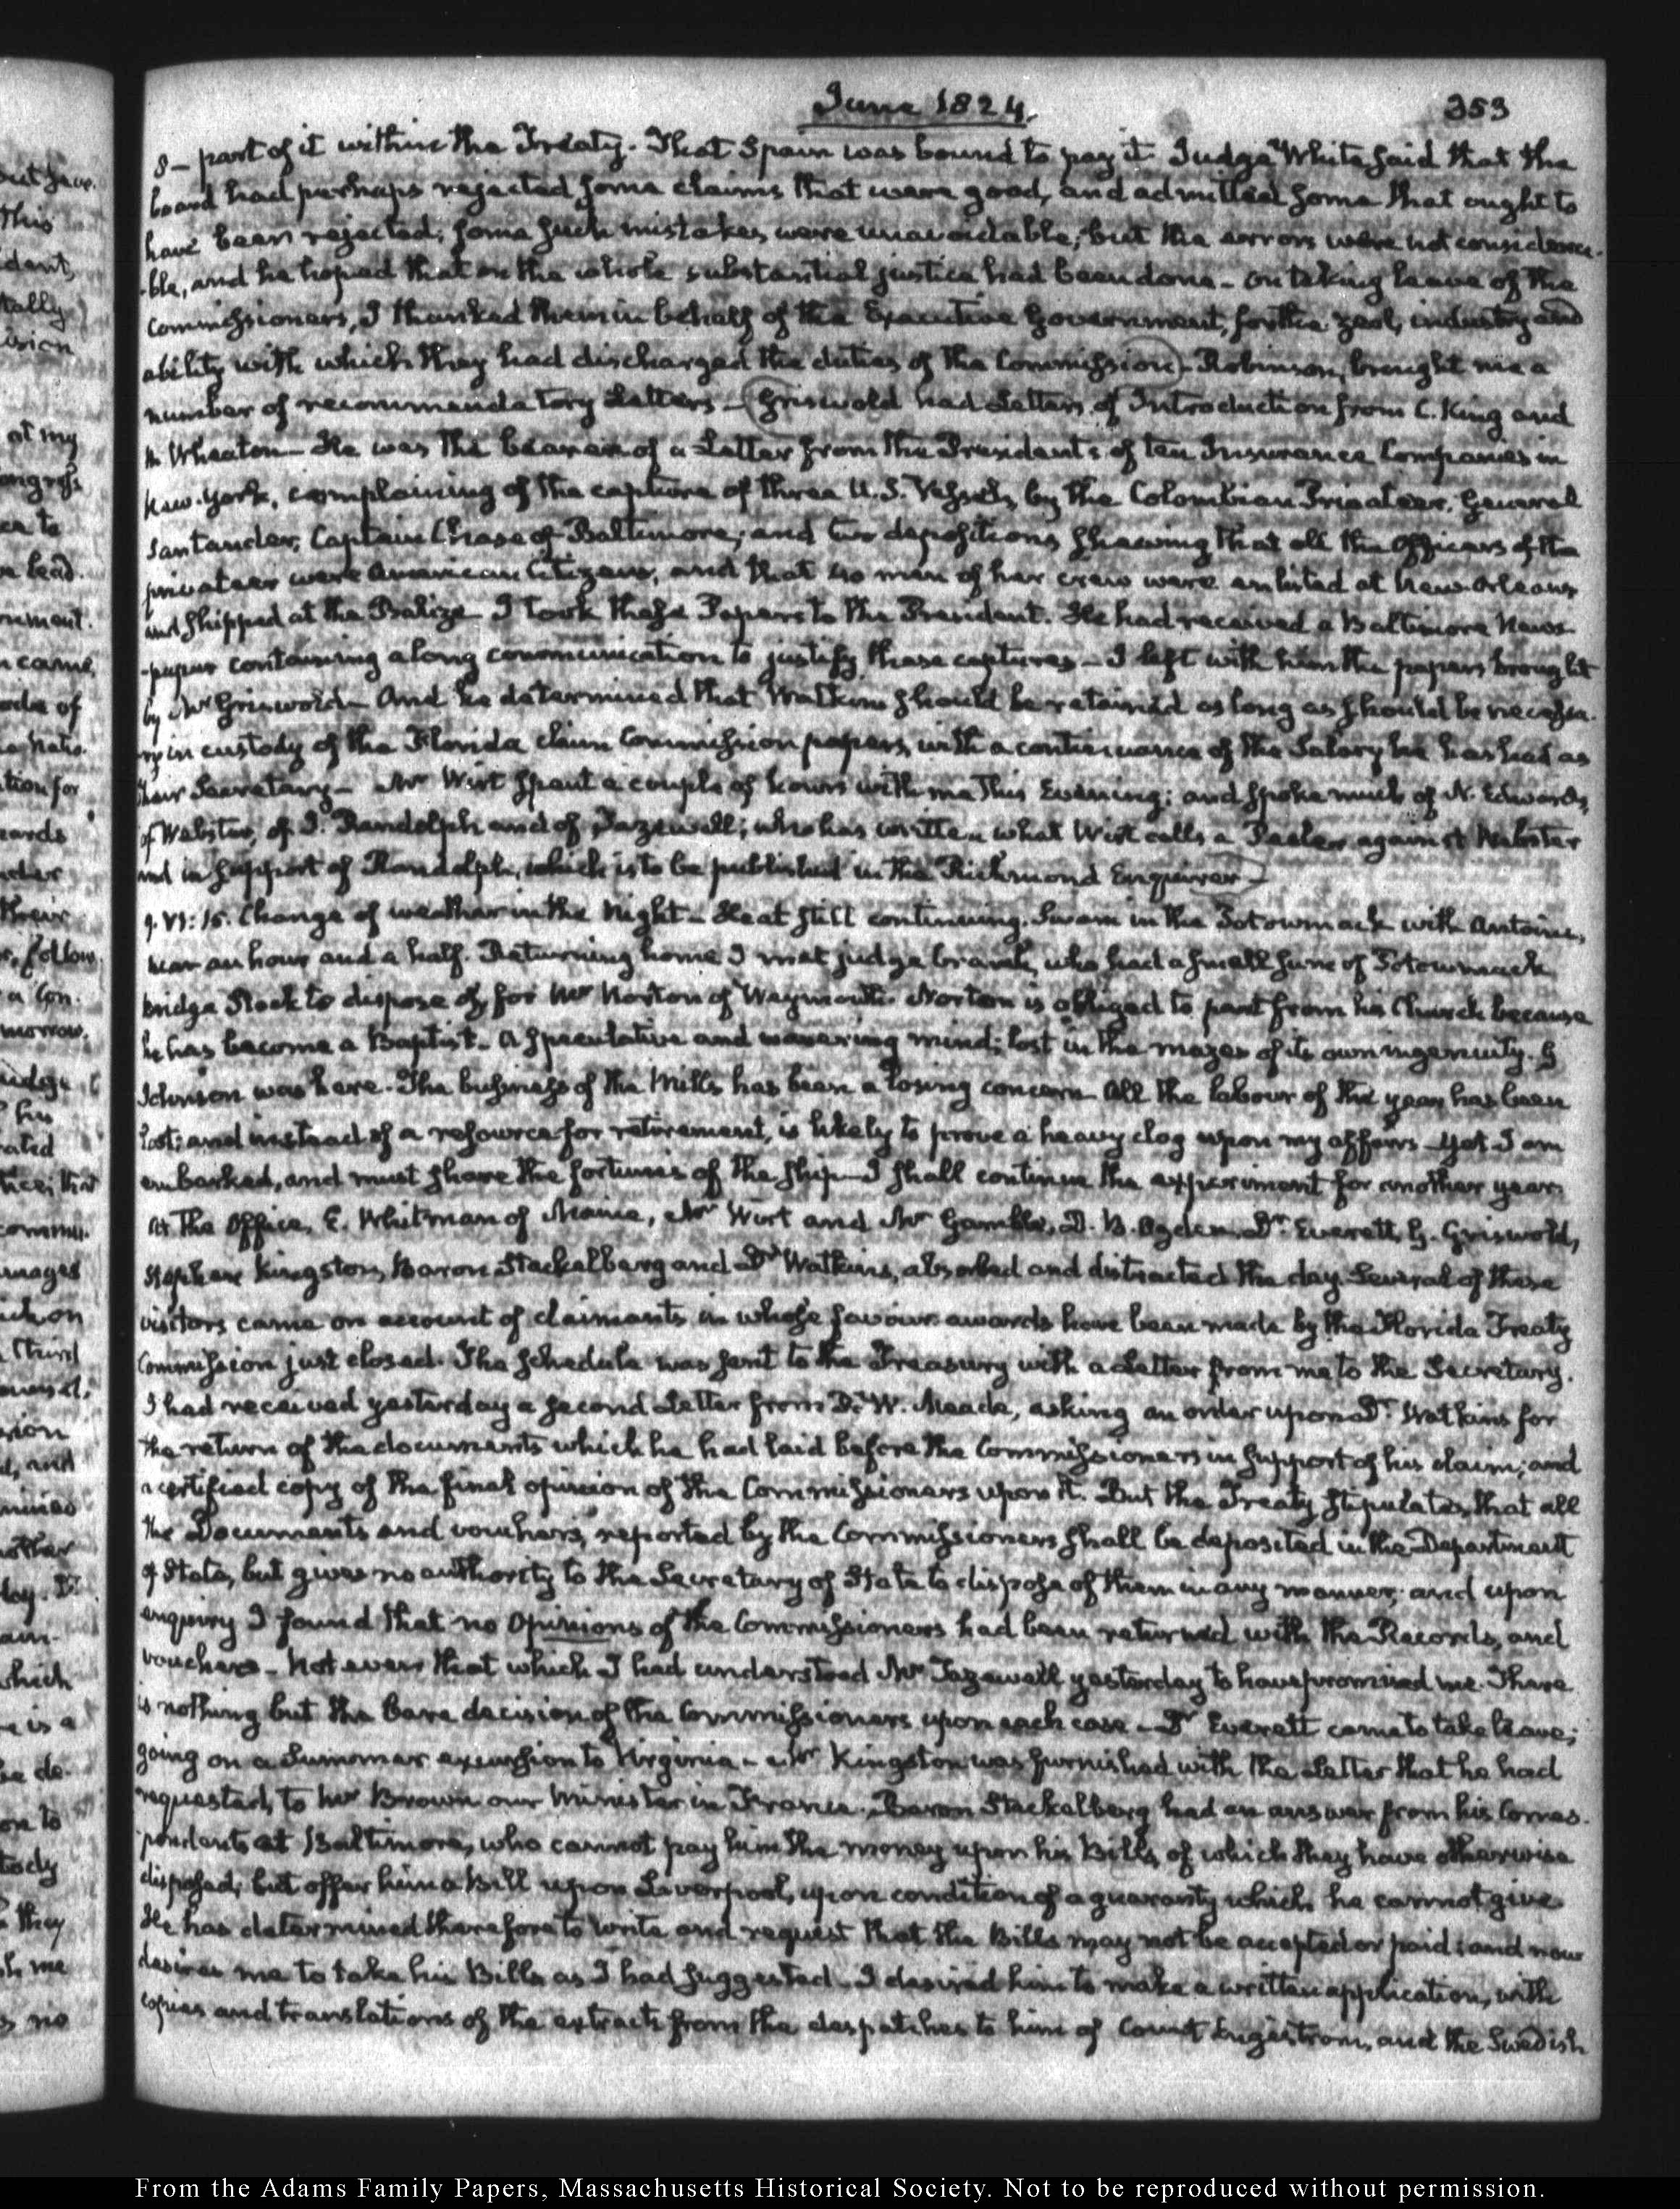 June 1824.
353
8— part of it within the Treaty. That Spain was bound to pay it. Judge White said that the
board had perhaps rejected some claims that were good, and admitted some that ought to
have been rejected; some such mistakes were unavoidable; but the errors were not considera-
-ble, and he hoped that on the whole substantial justice had been done— on taking leave of the
Commissioners, I thanked them in behalf of the Executive Government, for the zeal, industry and
ability with which they had discharged the duties of the Commission— Robinson, brought me a
number of recommendatory Letters— Griswold had Letters of Introduction from C. King and
H Wheaton— He was the bearer of a Letter from the Presidents of ten Insurance Companies in
New-York, complaining of the capture of three U.S. Vessels, by the Colombian Privateer, General
Santander, Captain Chase of Baltimore; and two depositions shewing that all the Officers of the
privateer were American Citizens, and that 40 men of her crew were enlisted at New-Orleans
and shipped at the Balize— I took these Papers to the President. He had received a Baltimore News-
-paper containing a long communication to justify these captures— I left with him the papers brought
by Mr Griswold— And he determined that Watkins should be retained as long as should be necessa-
-ry in custody of the Florida claim Commission papers, with a continuance of the Salary he has had as
their Secretary— Mr Wirt spent a couple of hours with me this Evening; and spoke much of N. Edwards,
of Webster, of J. Randolph and of Tazewell; who has written what Wirt calls a Peeler against Webster
and in support of Randolph, which is to be published in the Richmond Enquirer—
9. VI: 15. Change of weather in the Night— Heat still continuing. Swam in the Potowmack with Antoine,
near an hour and a half. Returning home I met judge Cranch, who had a small sum of Potowmack
bridge Stock to dispose of, for Mr Norton of Weymouth. Norton is obliged to part from his Church because
he has become a Baptist— A speculative and wavering mind; lost in the mazes of its own ingenuity. G
Johnson was here. The business of the Mills has been a losing concern— All the labour of the year has been
lost; and instead of a resource for retirement, is likely to prove a heavy clog upon my affairs— yet I am
embarked, and must share the fortunes of the ship— I shall continue the experiment for another year.
At the Office, E. Whitman of Maine, Mr Wirt and Mr Gamble, D. B. Ogden, Dr. Everett, G. Griswold,
Stephen Kingston, Baron Stackelberg and Dr Watkins, absorbed and distracted the day. Several of these
visitors came on account of claimants in whose favour awards have been made by the Florida Treaty
Commission just closed. The schedule was sent to the Treasury with a Letter from me to the Secretary.
I had received yesterday a second Letter from R. W. Meade, asking an order upon Dr. Watkins for
the return of the documents which he had laid before the Commissioners in support of his claim; and
a certified copy of the final opinion of the Commissioners upon it. But the Treaty stipulates, that all
the Documents and vouchers, reported by the Commissioners shall be deposited in the Department
of State, but gives no authority to the Secretary of State to dispose of them in any manner; and upon
enquiry I found that no Opinions of the Commissioners had been returned with the Records, and
vouchers— Not even that which I had understood Mr Tazewell yesterday to have promised me. There
is nothing but the bare decision of the Commissioners upon each case— Dr Everett came to take leave;
going on a Summer excursion to Virginia— Mr Kingston was furnished with the Letter that he had
requested, to Mr Brown our Minister in France. Baron Stackelberg had an answer from his Corres-
-pondents at Baltimore, who cannot pay him the money upon his Bills, of which they have otherwise
disposed; but offer him a Bill upon Liverpool, upon condition of a guaranty which he cannot give
He has determined therefore to write and request that the Bills may not be accepted or paid; and now
desires me to take his Bills as I had suggested— I desired him to make a written application, with
copies and translations of the extracts from the despatches to him of Count Engestrom, and the Swedish
From the Adams Family Papers, Massachusetts Historical Society. Not to be reproduced without permission.